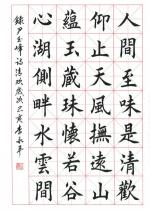 人間至味是清歡
仰止天風撫遠山
蘊玉藏珠懷若谷
心湖側畔水雲間
錄尹玉峰詩清歡歲次己亥李永平